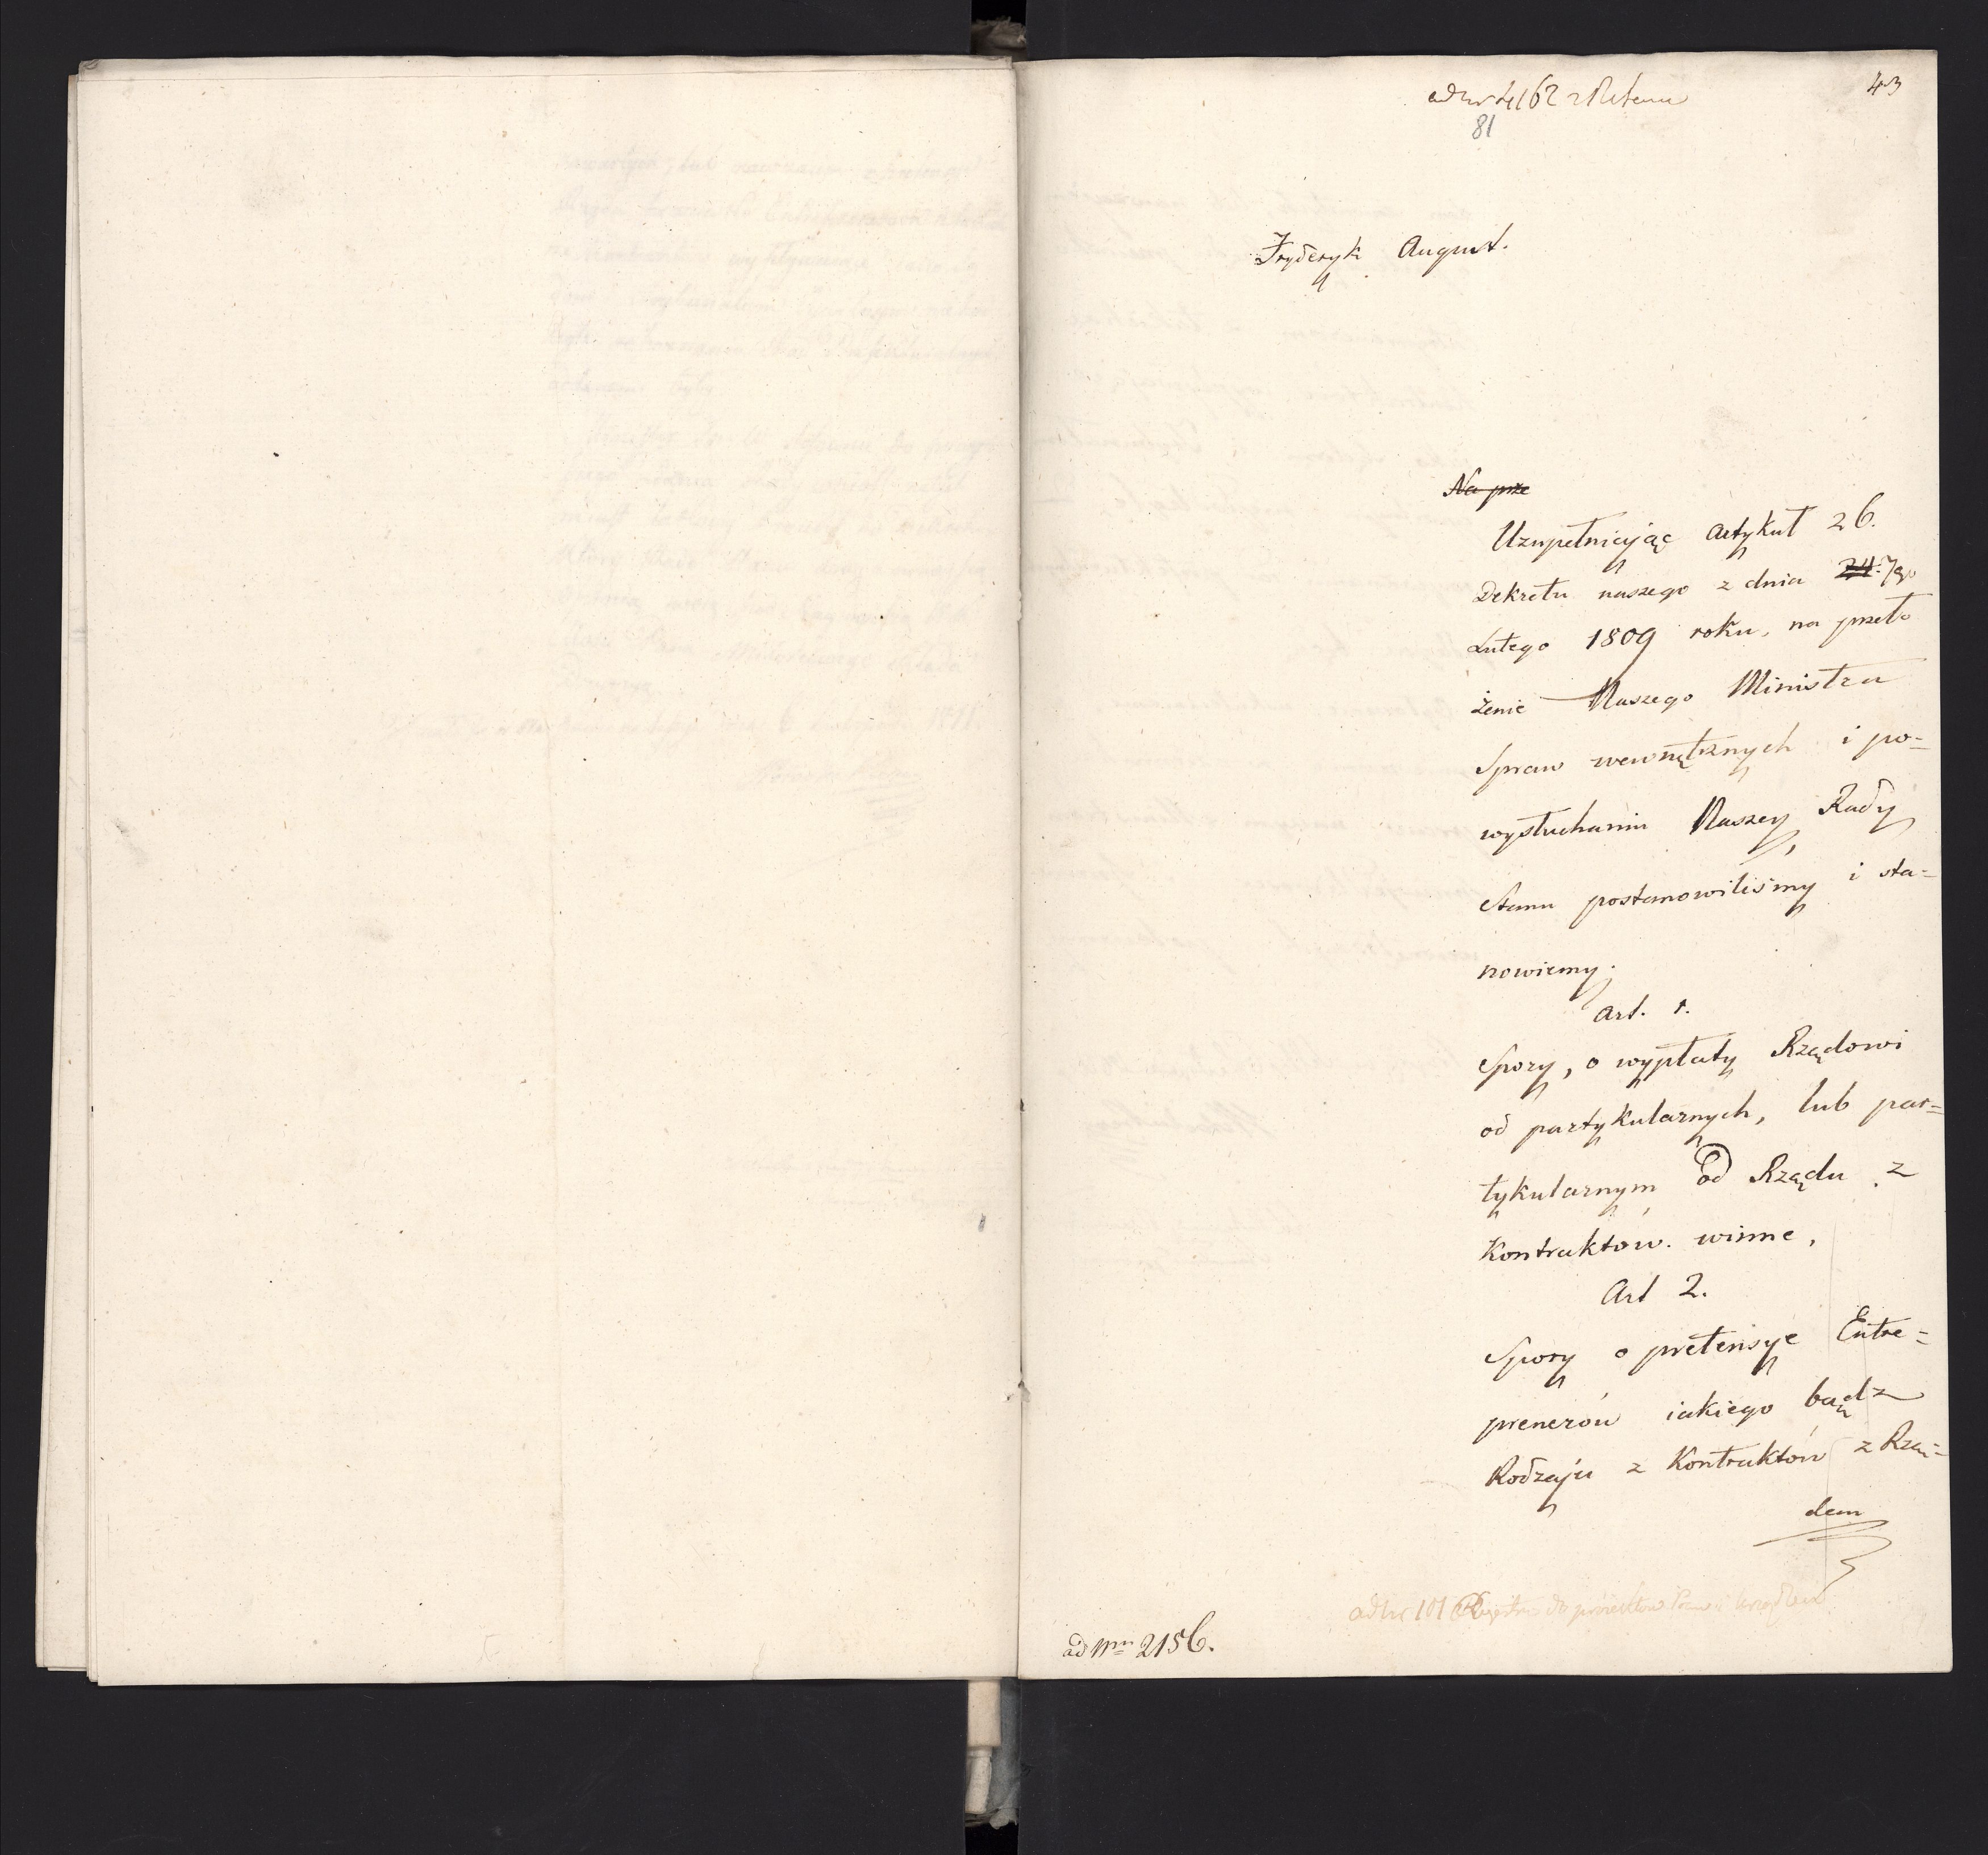 43
ad nr 4162
81
Fryderyk August.
Na prze
Uzupełniając Artykuł 26.
Dekretu naszego z dnia 24. 7go
Lutego 1809 roku, na przeło
żenie Naszego Ministra
Spraw wewnętrznych i po=
wysłuchaniu Naszey Rady
Stanu postanowiliśmy i sta=
nowiemy;
Art. 1.
Spory, o wypłaty Rządowi
od partykularnych, lub par=
tykularnym od Rządu z
Kontraktów. winne,
Art 2.
Spory o pretensye Entre=
prenerów iakiego bądz
Rodzaju z Kontraktów z Rzą=
dem
ad nr 101
ad Nrm 2156.